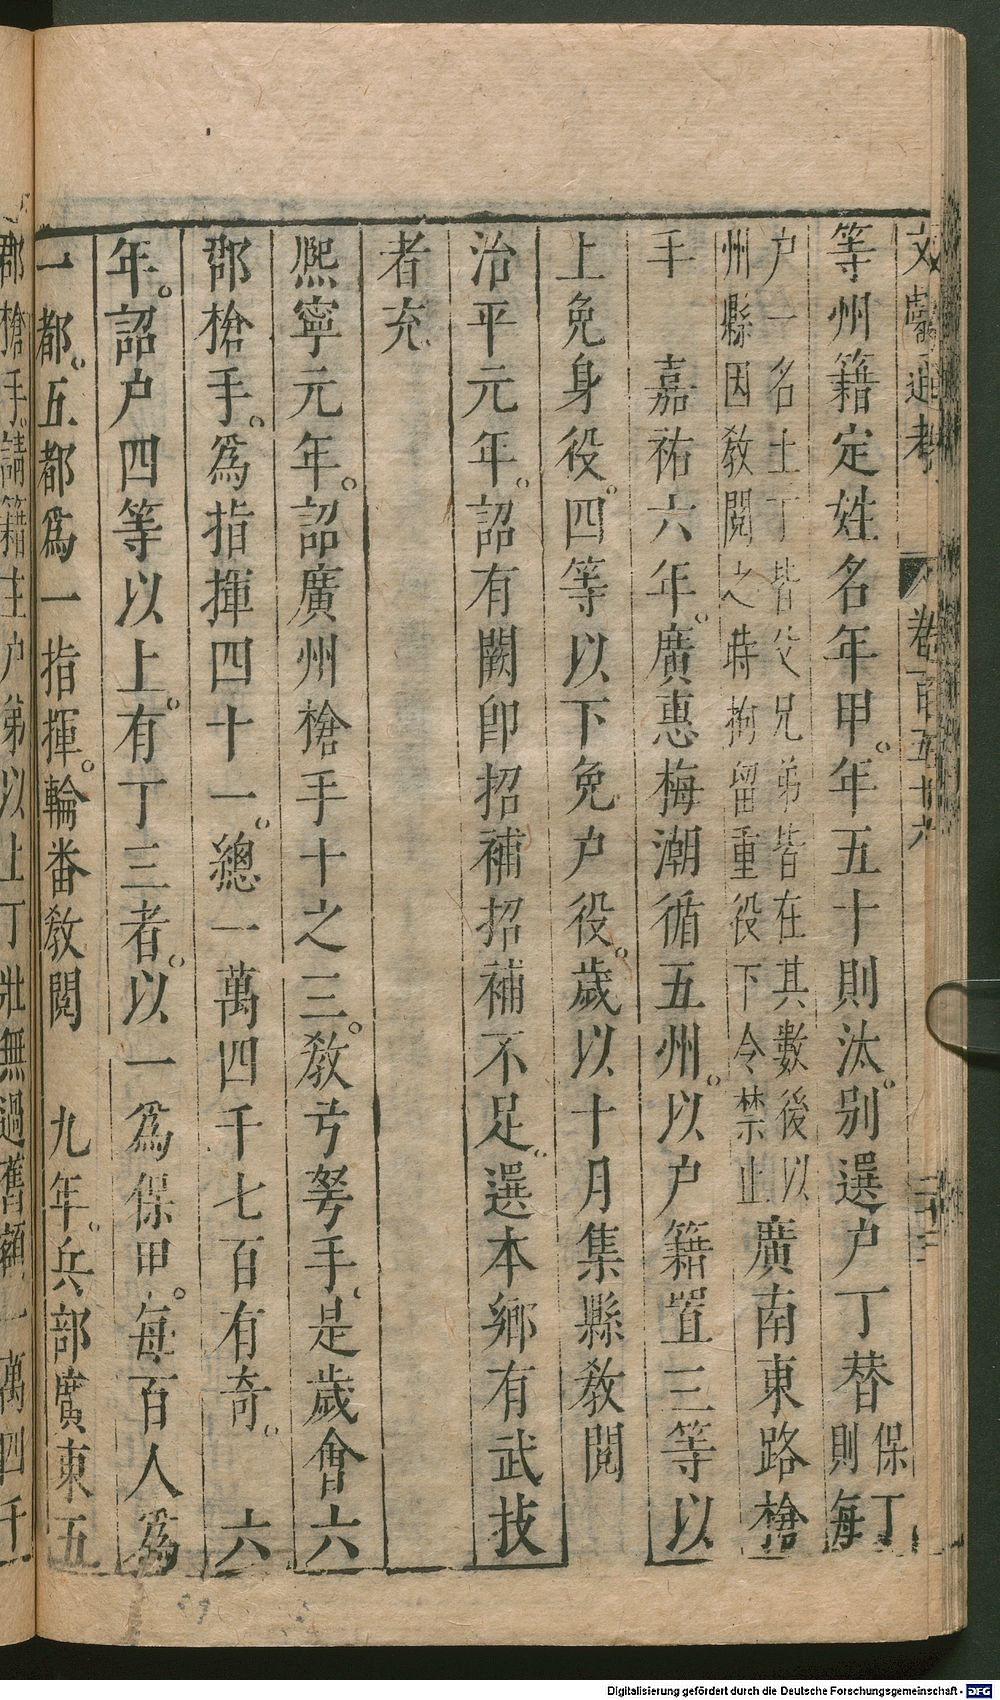 文獻通考 卷一百五十六 二十三
等州籍定姓名年甲。年五十則汰。别選户丁替保丁則每
户一名土丁皆父兄弟皆在其數後以州縣因教閲之時拘留重役下令禁止廣南東路槍
手 嘉祐六年。廣惠梅潮循五州。以户籍置三等以
上免身役。四等以下免户役。歲以十月集縣教閲
治平元年。詔有闕卽招補招補不足。選本鄉有武技
者充
熙寧元年。詔廣州槍手十之三。教弓弩手。是歲會六
郡槍手。爲指揮四十一。總一萬四千七百有奇。 六
年。詔户四等以上。有丁三者。以一爲保甲。每百人爲
一都。五都爲一指揮。輪番教閲 九年。兵部廣東五
郡槍手。請籍主户第以上丁壯無過舊額一萬四千
Digitalisierung gefördert durch die Deutsche Forschungsgemeinschaft - DFG